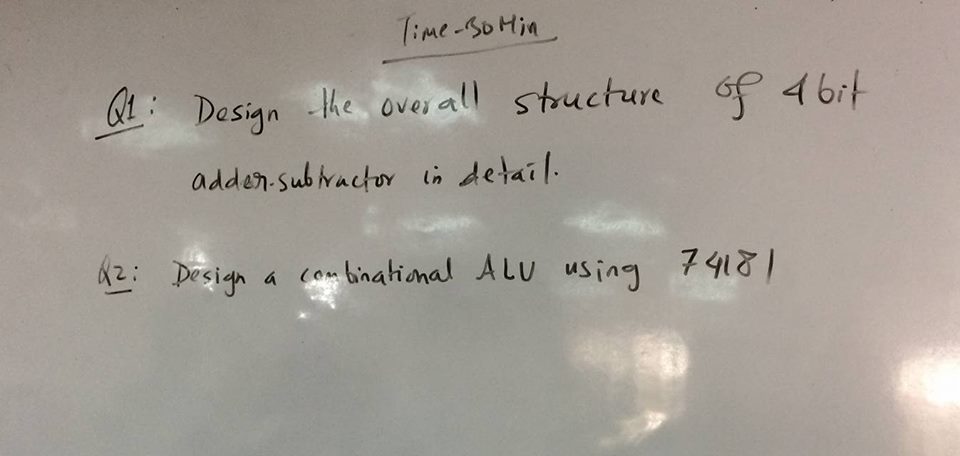 Time-30 Min
Q1: Design the overall structure of 4 bit
adder-subtractor in detail.
Q2: Design a combinational ALU using 74181